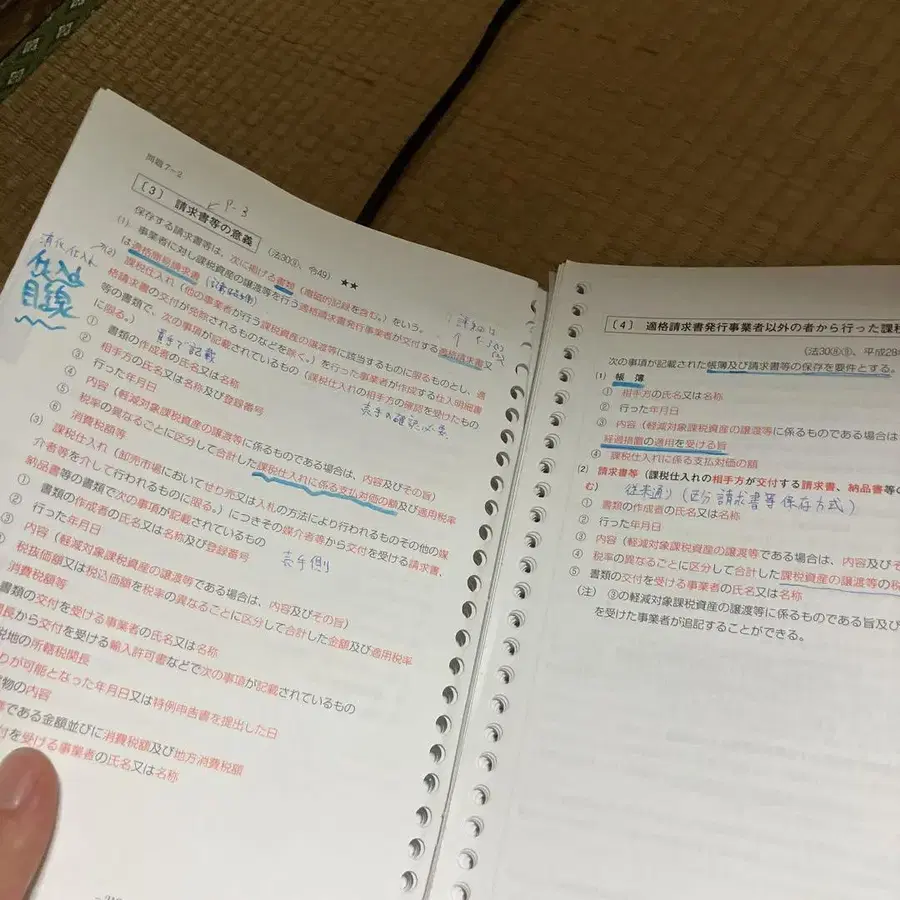 問題7-2
P-3
〔3〕 請求書等の意義 (法30⑨、令49) ★★
保存する請求書等は、次に掲げる書類(電磁的記録を含む。)をいう。
(1) 事業者に対し課税資産の譲渡等を行う適格請求書発行事業者が交付する適格請求書又
は適格簡易請求書
仕入れ
仕入
目線
(2) 課税仕入れ(他の事業者が行う課税資産の譲渡等に該当するものに限るものとし、適
格請求書の交付が免除されるものなどを除く。)を行った事業者が作成する仕入明細書
等の書類で、次の事項が記載されているもの(課税仕入れの相手方の確認を受けたもの
に限る。)
買手で記載
売手の確認必要
① 書類の作成者の氏名又は名称
② 相手方の氏名又は名称及び登録番号
③ 行った年月日
④ 内容(軽減対象課税資産の譲渡等に係るものである場合は、内容及びその旨)
⑤ 税率の異なるごとに区分して合計した課税仕入れに係る支払対価の額及び適用税率
⑥ 消費税額等
(3) 課税仕入れ(卸売市場においてせり売又は入札の方法により行われるものその他の媒
介者等を介して行われるものに限る。)につきその媒介者等から交付を受ける請求書、
納品書等の書類で次の事項が記載されているもの
売手側
① 書類の作成者の氏名又は名称及び登録番号
行った年月日
③ 内容(軽減対象課税資産の譲渡等である場合は、内容及びその旨)
税抜価額又は税込価額を税率の異なるごとに区分して合計した金額及び適用税率
消費税額等
書類の交付を受ける事業者の氏名又は名称
関長から交付を受ける輸入許可書などで次の事項が記載されているもの
税地の所轄税関長
りが可能となった年月日又は特例申告書を提出した日
物の内容
である金額並びに消費税額及び地方消費税額
付を受ける事業者の氏名又は名称
〔4〕 適格請求書発行事業者以外の者から行った課税
(法30⑧⑨、平成28
次の事項が記載された帳簿及び請求書等の保存を要件とする。
(1) 帳 簿
① 相手方の氏名又は名称
② 行った年月日
③ 内容(軽減対象課税資産の譲渡等に係るものである場合は
経過措置の適用を受ける旨
④ 課税仕入れに係る支払対価の額
(2) 請求書等(課税仕入れの相手方が交付する請求書、納品書等の
む)
従来通り(区分請求書等保存方式)
① 書類の作成者の氏名又は名称
② 行った年月日
③ 内容(軽減対象課税資産の譲渡等である場合は、内容及びそ
④ 税率の異なるごとに区分して合計した課税資産の譲渡等の税
⑤ 書類の交付を受ける事業者の氏名又は名称
(注) ③の軽減対象課税資産の譲渡等に係るものである旨及び
を受けた事業者が追記することができる。